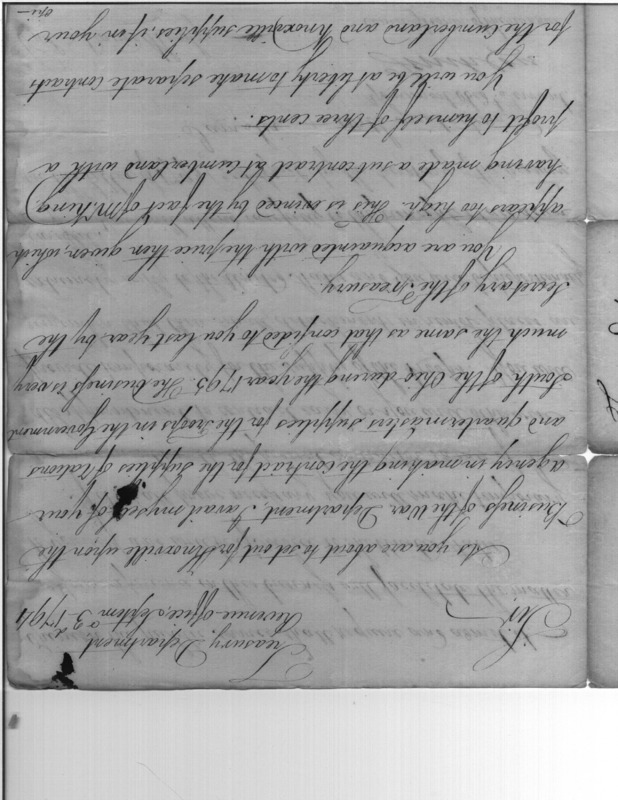 Treasury Department
Revenue office, Septem 3d 1794
Sir
As you are about to set out for Knoxville upon the
Business of the War Department I avail myself of your
agency in making the Contract for the Supplies of Rations
and quartermasters supplies for the Troops in the Government
South of the Ohio during the year 1795. The business is very
much the same as that confided to you last year by the
Secretary of the Treasury.
You are acquainted with the price then given, which
appears too high. This is evinced by the fact of Mr. King
having made a subcontract at Cumberland with a
profit to himself of three cents.
You will be at liberty to make separate Contracts
for the Cumberland and Knoxville supplies, if in your
opi-